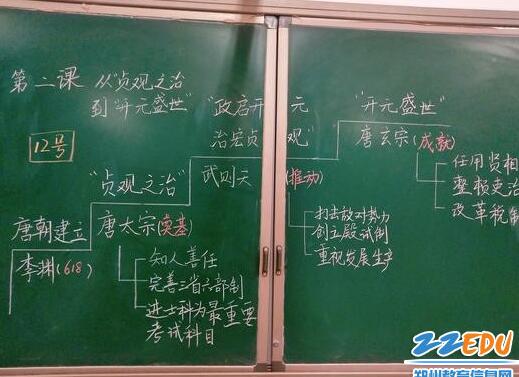 第二课 从"贞观之治
到"开元盛世"
12号
"政启开元
治宏贞观"
"开元盛世"
唐玄宗(成就)
任用贤相
整顿吏治
改革税制
武则天(推动)
打击敌对势力
创立殿试制
重视发展生产
"贞观之治"
唐太宗(奠基)
知人善任
完善三省六部制
进士科为最重要
考试科目
唐朝建立
李渊(618)
ZZEDU
郑州教育信息网